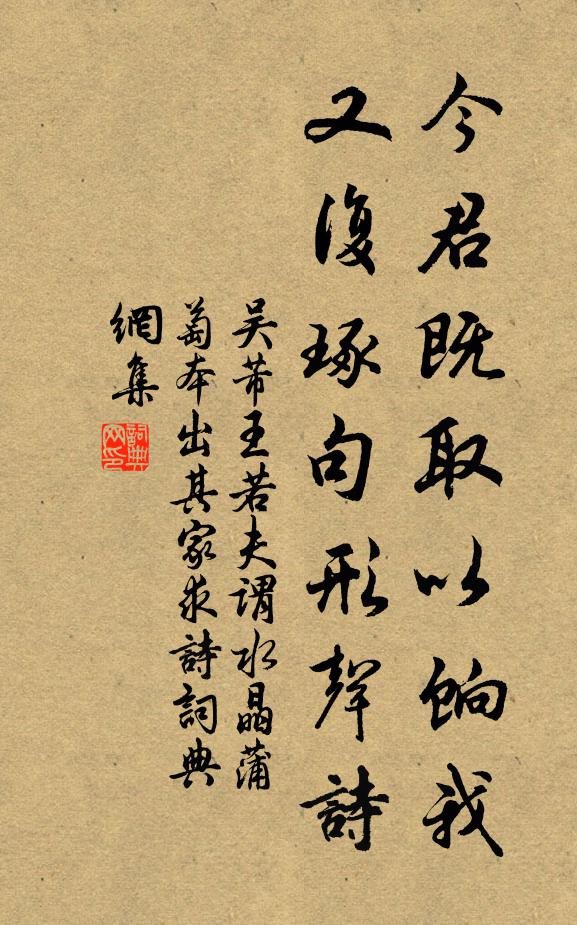 今君既取以餉我
又復琢句形聲詩
吳芾王若夫謂水晶蒲
萄本出其家求詩詞典
網集
詞典
网印